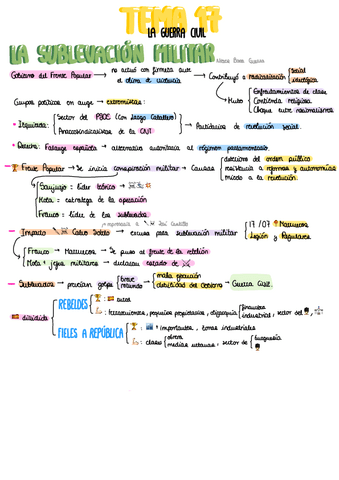 TEMA 17
LA GUERRA CIVIL
LA SUBLEVACIÓN MILITAR
Gobierno del Frente Popular → no actuó con firmeza ante el clima de violencia → Contribuyó a radicalización social ideológica
Hubo Enfrentamientos de clase
Contienda religiosa
Choque entre nacionalismos
Grupos políticos en auge → extremistas:
Izquierda: Sector del PSOE (con Largo Caballero)
Anarcosindicalistas de la CNT
→ Partidarios de revolución social.
Derecha: Falange española → alternativa autoritaria al régimen parlamentario.
Frente Popular → Se inicia conspiración militar → Causas deterioro del orden público
resistencia a reformas y autonomías
miedo a la revolución.
Sanjurjo: líder teórico →
Mola: estratega de la operación
Franco: líder de los sublevados
José Castillo
Impacto Calvo Sotelo → excusa para sublevación militar 17/07 Marruecos
Legión y Regulares
Franco → Marruecos → Se puso al frente de la rebelión
Mola + jefes militares → declararon estado de
Sublevados → preveían golpe breve mala ejecución
debilidad del Gobierno → Guerra Civil.
dividida
REBELDES
: terratenientes, pequeños propietarios, oligarquía financiera industrial, sector del
FIELES A REPÚBLICA
: + importantes, zonas industriales
: clases obrera
medias urbanas, sector de burguesía